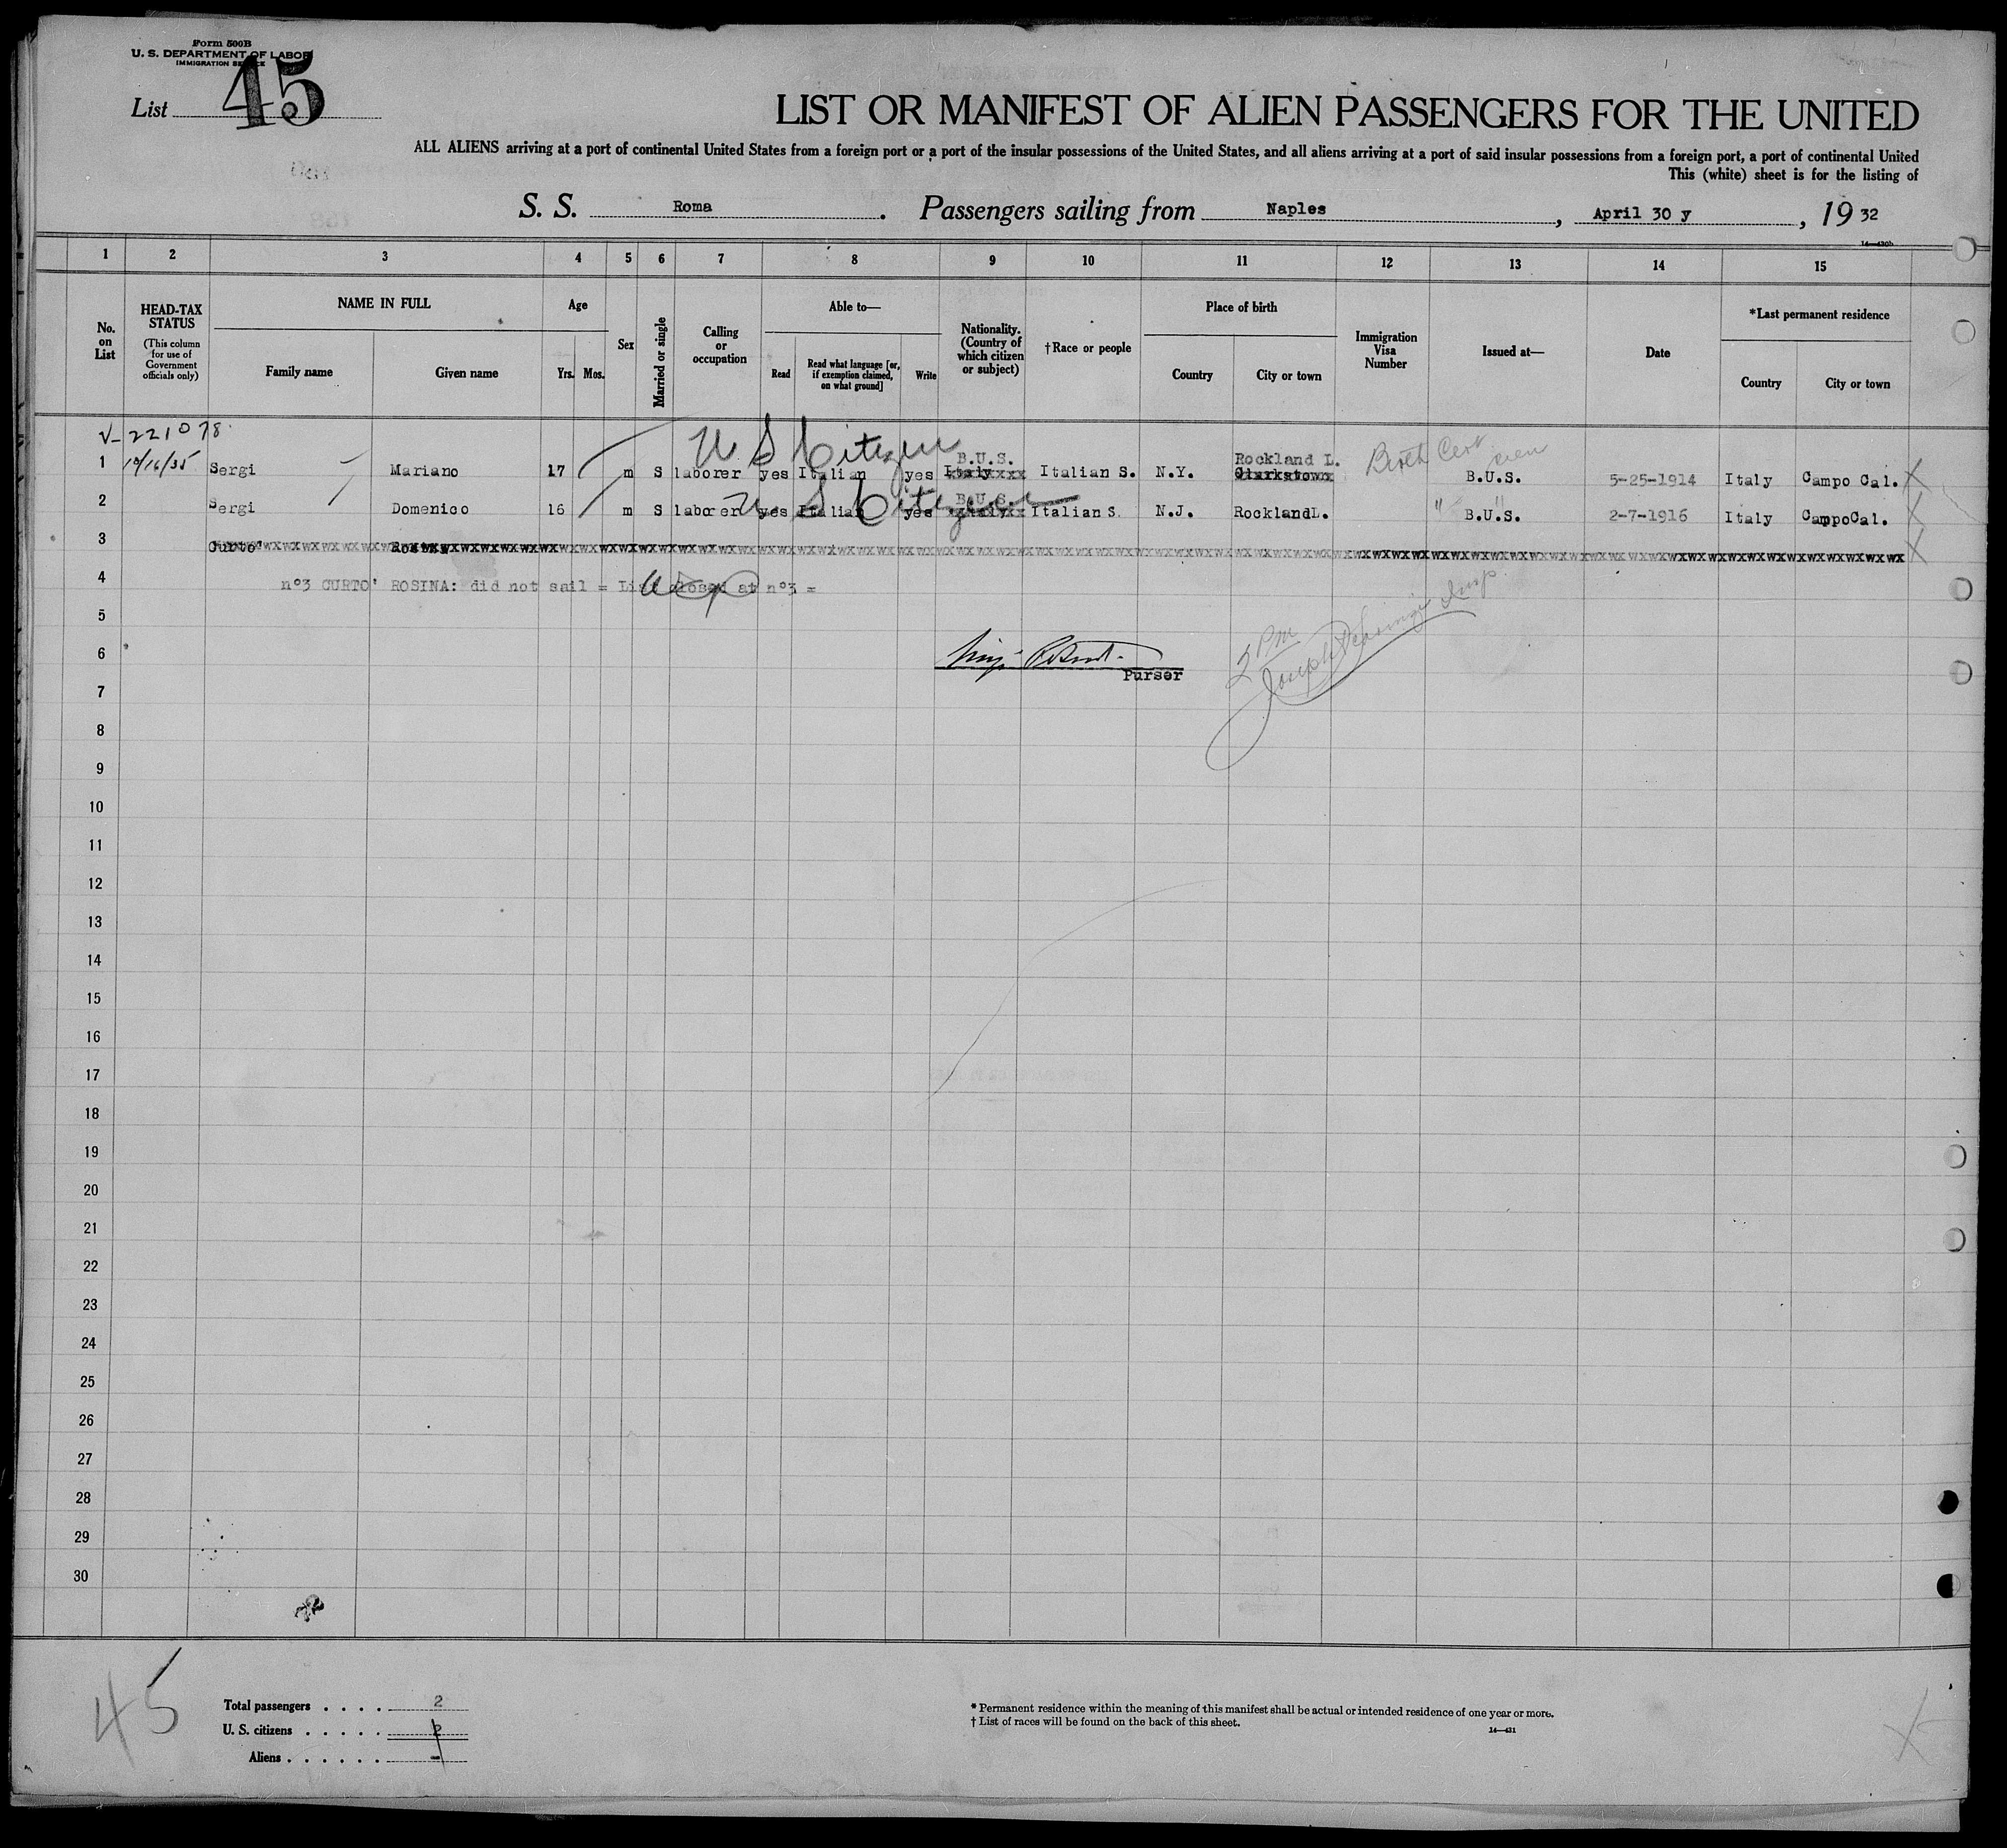 Form 500B
U. S. DEPARTMENT OF LABOR
IMMIGRATION SERVICE
List 45
LIST OR MANIFEST OF ALIEN PASSENGERS FOR THE UNITED
ALL ALIENS arriving at a port of continental United States from a foreign port or a port of the insular possessions of the United States, and all aliens arriving at a port of said insular possessions from a foreign port, a port of continental United
This (white) sheet is for the listing of
S. S. Roma. Passengers sailing from Naples, April 30 y, 19 32
14—430b
1 2 3 4 5 6 7 8 9 10 11 12 13 14 15
No. on List
HEAD-TAX STATUS
(This column for use of Government officials only)
NAME IN FULL
Family name Given name
Age
Yrs. Mos.
Sex
Married or single
Calling or occupation
Able to—
Read Read what language [or, if exemption claimed, on what ground] Write
Nationality. (Country of which citizen or subject)
†Race or people
Place of birth
Country City or town
Immigration Visa Number
Issued at—
Date
*Last permanent residence
Country City or town
V-221078
U S Citizen
Birth Cert
B.U.S. Rockland L.
1 10/16/35 Sergi Mariano 17 m S laborer yes Italian yes Italy Italian S. N.Y. Clarkstown B.U.S. 5-25-1914 Italy Campo Cal. X
U S Citizen
B.U.S.
2 Sergi Domenico 16 m S laborer yes Italian yes Italy Italian S. N.J. RocklandL. " " B.U.S. 2-7-1916 Italy CampoCal. X
3 Curto' Rosina X
4 n°3 CURTO' ROSINA: did not sail = List closed at n°3 =
5
6
Purser
2 PM
Insp.
7
8
9
10
11
12
13
14
15
16
17
18
19
20
21
22
23
24
25
26
27
28
29
30
45
Total passengers . . . . 2
U. S. citizens . . . . . 2
Aliens . . . . . . -
* Permanent residence within the meaning of this manifest shall be actual or intended residence of one year or more.
† List of races will be found on the back of this sheet.
14—431
X